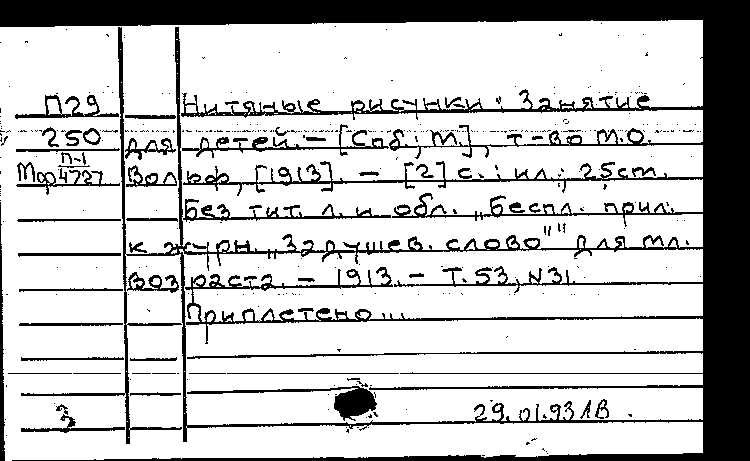 П29 Нитяные рисунки: Занятие
250 для детей. – [Спб.; М.], т-во М.О.
Мф П-1/4727 Вольф, [1913]. – [2] с.: ил.; 25 см.
Без тит. л. и обл. „Беспл. прил.
к журн. „Задушев. слово"" для мл.
возраста. – 1913. – Т. 53, N31.
Приплетено...
29.01.93